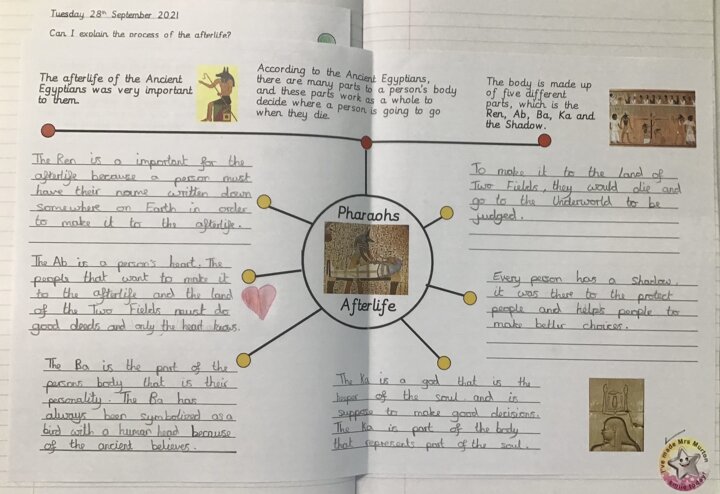 Tuesday 28th September 2021
Can I explain the process of the afterlife?
The afterlife of the Ancient
Egyptians was very important
to them.
According to the Ancient Egyptians,
there are many parts to a person's body
and these parts work as a whole to
decide where a person is going to go
when they die.
The body is made up
of five different
parts, which is the
Ren, Ab, Ba, Ka and
the Shadow.
The Ren is a important for the
afterlife because a person must
have their name written down
somewhere on Earth in order
to make it to the afterlife.
The Ab is a person's heart. The
people that want to make it
to the afterlife and the land
of the Two Fields must do
good deeds and only the heart knows.
The Ba is the part of the
persons body that is their
personality. The Ba has
always been symbolised as a
bird with a human head because
of the ancient believer.
Pharaohs
Afterlife
To make it to the land of
Two Fields, they would die and
go to the Underworld to be
judged.
Every person has a shadow.
it was there to the protect
people and helps people to
make better choices.
The Ka is a god that is the
keeper of the soul and is
suppose to make good decisions.
The Ka is part of the body
that represents part of the soul.
I've made Mrs Murton
smile today!